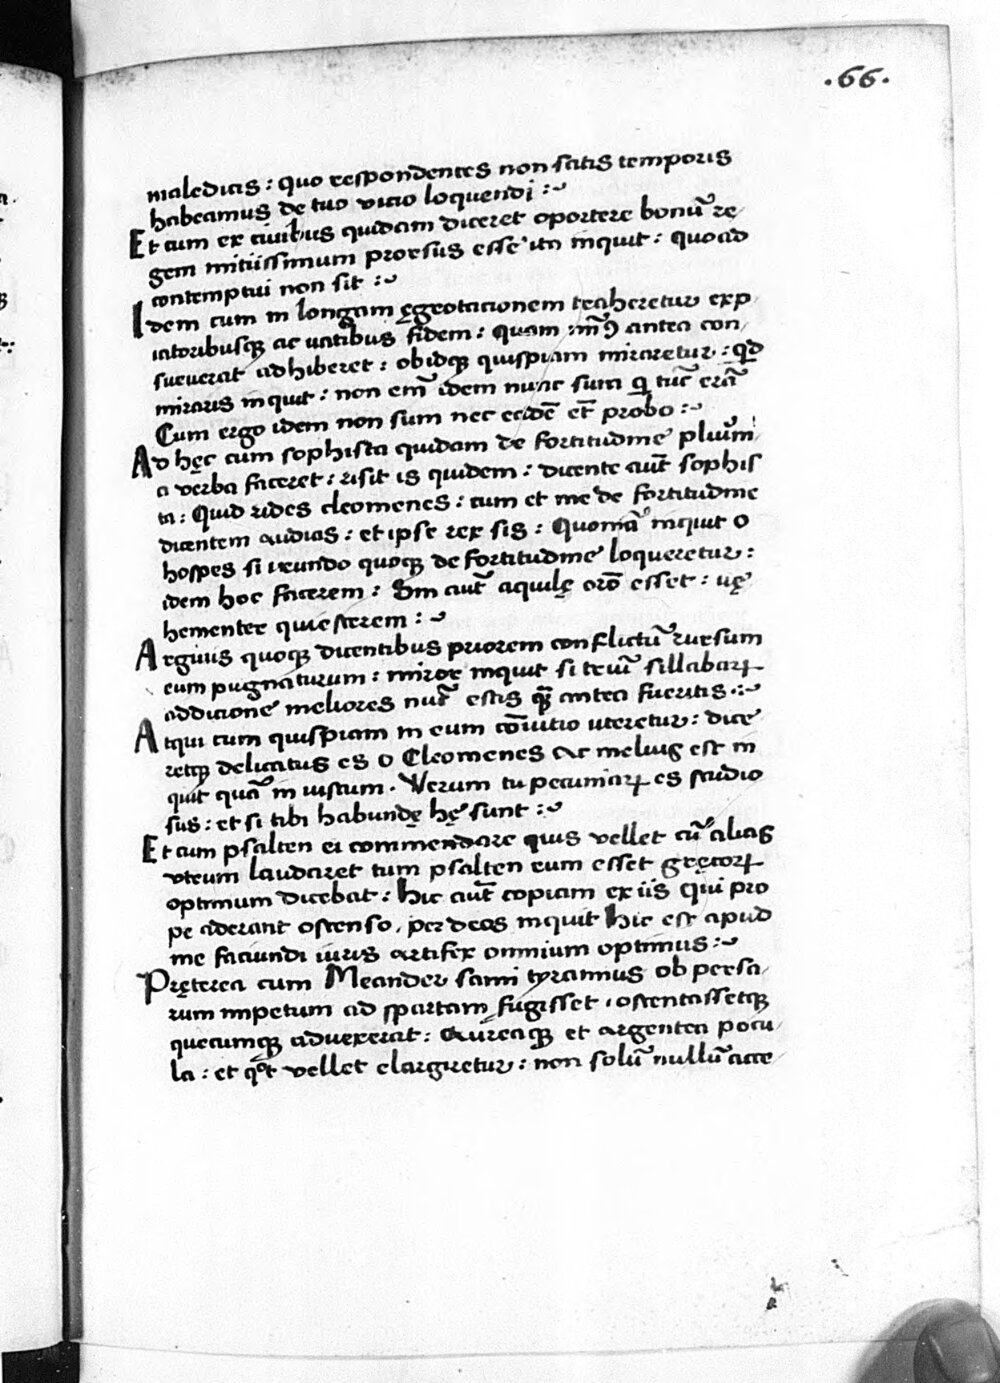 .66.
maledicis : quo respondentes non satis temporis
habeamus de tuo vicio loquendi :~
Et cum ex civibus quidam diceret oportere bonũ re
gem mitiissimum prorsus esse ita inquit : quoad
contemptui non sit :~
Idem cum in longam ęgrotacionem traheretur exp
iatoribusqꝫ ac vatibus fidem : quam antea con
sueverat adhiberet : obidqꝫ quispiam miraretur : qd
miraris inquit : non em̃ idem nunc sum q tũc erã
Cum ergo idem non sum nec eadẽ et̃ probo :~
Ad hęc cum sophista quidam de fortitudine plurim
a verba faceret : risit is quidem : dicente aut̃ sophis
ta : Quid rides cleomenes : cum et me de fortitudine
dicentem audias : et ipse rex sis : Quoniã inquit o
hospes si irundo quoqꝫ de fortitudine loqueretur :
idem hoc facerem : Sin aut̃ aquilę orõ esset : vę
hementer quiescerem :~
Argiuis quoqꝫ dicentibus priorem conflictũ rursum
eum pugnaturum : miror inquit si seuiũ sillabarꝝ
addicione meliores nũc estis qꝫ̃ antea fueritis :~
Atqui cum quispiam in eum cõvitio uteretur : dice
retqꝫ delicatus es o Cleomenes Ac melius est in
quit quã iniustum . Verum tu pecuniarꝝ es studio
sus : et si tibi habundę hę sunt :~
Et cum psalten ei commendare quis vellet cũ aliag
vterum laudaret tum psalten eum esset gręcorꝝ
optimum dicebat : hic aut̃ copiam ex iis qui pro
pe aderant ostenso , per deos inquit hic est apud
me faciundi iuris artifex omnium optimus :~
Pręterea cum Meander sami tyrannus ob persa
rum impetum ad spartam fugisset . ostentassetqꝫ
quecumqꝫ advexerat : Aureaqꝫ et argentea pocu
la : et qõt vellet elargiretur : non solũ nullũ acce